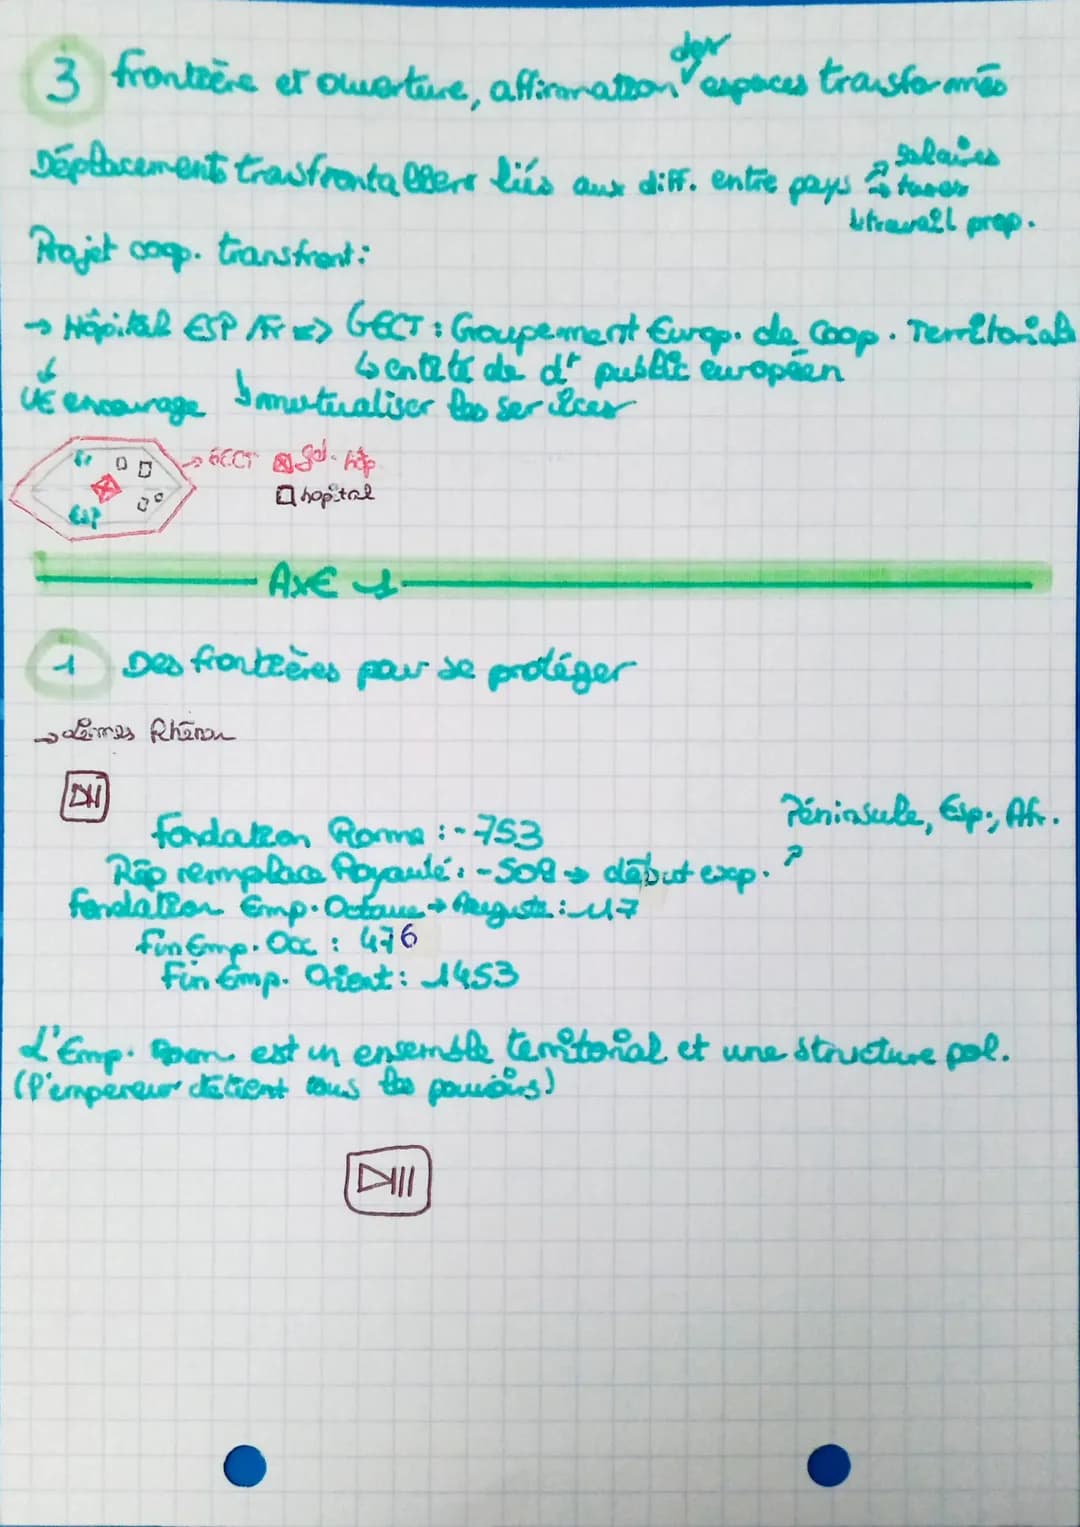 3 frontière et ouverture, affirmation des espaces transformés
Déplacements transfrontaliers liés aux diff. entre pays → salaires
→ taxes
↳ travail prop.
Projet coop. transfront :
→ Hôpital ESP/Fr => GECT : Groupement Europ. de Coop. Territoriale
↳ entité de dt public européen
UE encourage ↳ mutualiser les services
Fr
ESP
→ GECT
hôp
hopital
AXE 1
1 Des frontières pour se protéger
→ Limes Rhénan
Fondation Rome : -753
Péninsule, Esp., Afr.
Rép remplace Royauté : -509 → début exp.
fondation Emp. Octave → Auguste : -27
fin Emp. Occ : 476
Fin Emp. Orient : 1453
L'Emp. Rom. est un ensemble territorial et une structure pol.
(l'empereur détient tous les pouvoirs)